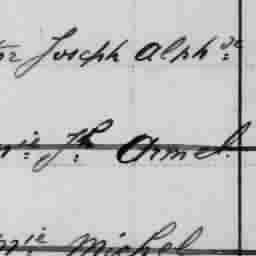 Joseph Alph:se
ie: Jh: Armel.
ie: Michel